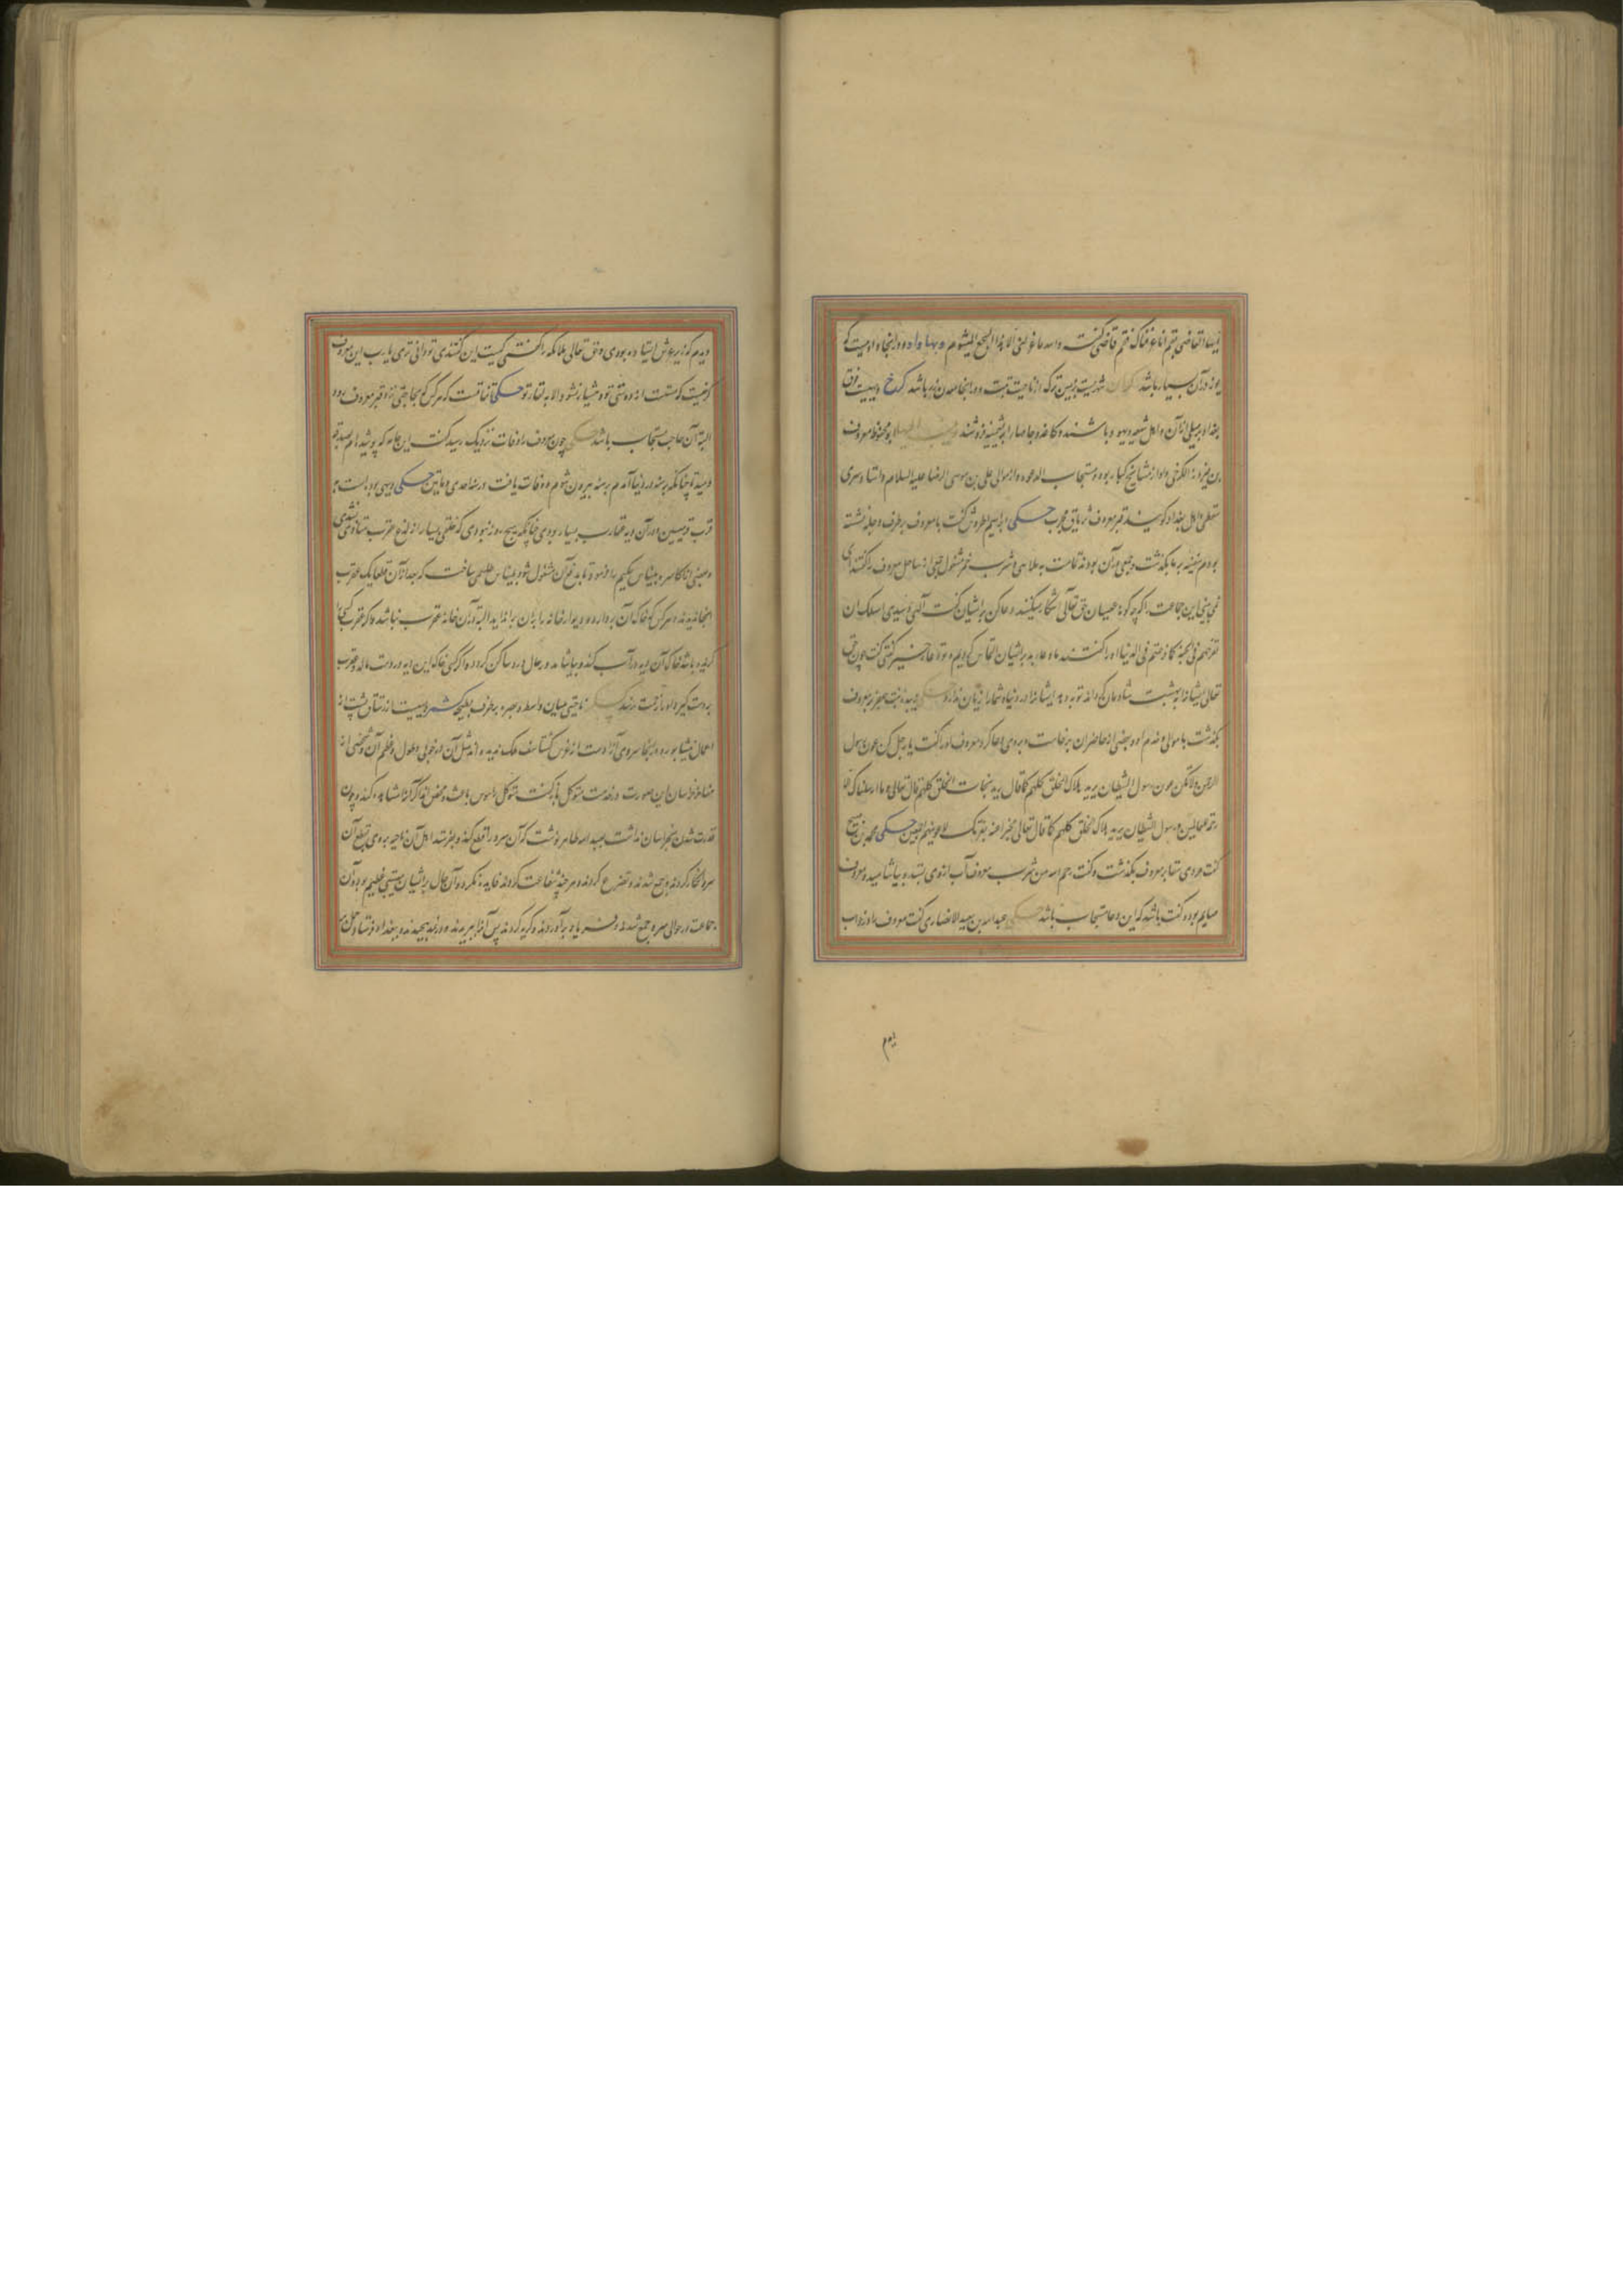 ایها القاضی بقم انا عزلناک فقم قاضی گفت والله ما عزلنی الا هذا السجع المیشوم و بها واد و در اینجا وادییست که
بوزنه در آن بسیار باشد شهریست بزمین ترک از ناحیت تبت و در آنجا معدن زر باشد کرخ دیهیست فوق
بغداد بر میلی از آن و اهل شیعه و یهود باشند و کاغذ و جامهای ابریشمینه فروشند ابو محفوظ معروف
بن فیروز الکرخی و او از مشایخ کبار بوده و مستجاب الدعوه و از موالی علی بن موسی الرضا علیه السلام و استاد سری
سقطی و اهل بغداد گویند قبر معروف تریاق مجرب حکی ابراهیم اطروش گفت با معروف بر طرف دجله نشسته
بودم سفینه بر ما بگذشت و جمعی در آن بودند تمامت به ملاهی و شرب خمر مشغول جمعی از ساحل معروف را گفتند ای
نمی بینی این جماعت را که چگونه عصیان حق تعالی آشکارا میکنند دعا کن بر ایشان گفت الهی و سیدی اسلک ان
تفرحهم فی الجنة کما فرحتهم فی الدنیا او را گفتند ما دعای بد بر ایشان التماس کردیم و تو دعای خیر گفتی گفت چون حق
تعالی ایشانرا ببهشت شادمان گرداند توبه دهد ایشانرا در دنیا و شما را زیان ندارد بمعروف
بگذشت با موالی و خدم او و بعضی از حاضران برخاست و بروی دعا کرد معروف او را گفت یا رجل کن عون رسول
الرحمن و لا تکن عون رسول الشیطان یرید هلاک الخلق کلهم کما قال یرید نجات الخلق کلهم قال تعالی و ما ارسلناک الا
رحمة للعالمین و رسول الشیطان یرید هلاک الخلق کلهم کما قال تعالی مخبرا عنه بعزتک لاغوینهم اجمعین حکی محمد بن صبیح
گفت مردی سقا بر معروف بگذشت و گفت رحم الله من شرب معروف آب از وی بستد و بیاشامید و معروف
صایم بود و گفت باشد که این دعا مستجاب باشد عبدالله بن سعید الانصاری گفت معروف را در خواب
دیدم که زیر عرش ایستاده بودی و حق تعالی ملائکه را گفتی کیست این گفتندی تو داناتری یا رب این معروف
کرخیست که مستست از دوستی تو و هشیار نشود الا به لقای تو حکی ثنا قست که هر کس که بحاجتی نزد قبر معروف رود
البته آن حاجت مستجاب باشد چون معروف را وفات نزدیک رسید گفت این جامه که پوشیده ام بصدقه
دهید تا چنانکه برهنه در دنیا آمدم برهنه بیرون شوم و وفات یافت در سنه احدی و مایتین حکی دیهی بوده است
قرب قرمیسین و در آن دیه عقارب بسیار بودی چنانکه هیچ روز نبودی که خلقی بسیار از لدغ عقرب متاذی نشدی
و بعضی از اکاسره بلیناس حکیم را فرمود تا بدفع آن مشغول شود بلیناس طلسمی ساخت که بعد از آن قطعا یک عقرب
آنجا ندیدند و هر کس که خاک آن بردارد و دیوار خانه را بدان براندايد البته در آن خانه عقرب نباشد و اگر عقرب کسی را
گزیده باشد خاک آن دیه در آب کند و بیاشامد در حال درد ساکن گردد و اگر کسی خاک این دیه در دست مالد و عقرب
بدست گیرد او را زحمت نرسد ناحیتی میان واسط و بصره بر طرف بطیحا کشمر دیهیست از رستاق بشت از
اعمال نیشابور و در آنجا سروی آزادست از غرس گشتاسف ملک ندیده اند مثل آن در خوبی و طول و عظم آن و شخصی از
مفاخر خراسان این صورت در خدمت متوکل باز گفت متوکل را هوس باعث و محرض شد که آنرا مشاهده کند و چون
قدرت شدن بخراسان نداشت بعبد الله طاهر نوشت که آن سرو را قطع کند و بفرستد اهل آن ناحیه بر وی بقطع آن
سرو انکار کردند و جمع شدند و تضرع کردند و هر چند شفاعت کردند فایده نکرد و در آن حال بر ایشان مصیبتی عظیم بود و آن
جماعت در حوالی سرو جمع شدند و فریاد برآوردند و گریه کردند پس آنرا ببریدند و در نمد پیچیدند و ببغداد فرستاد و علی
دیدم